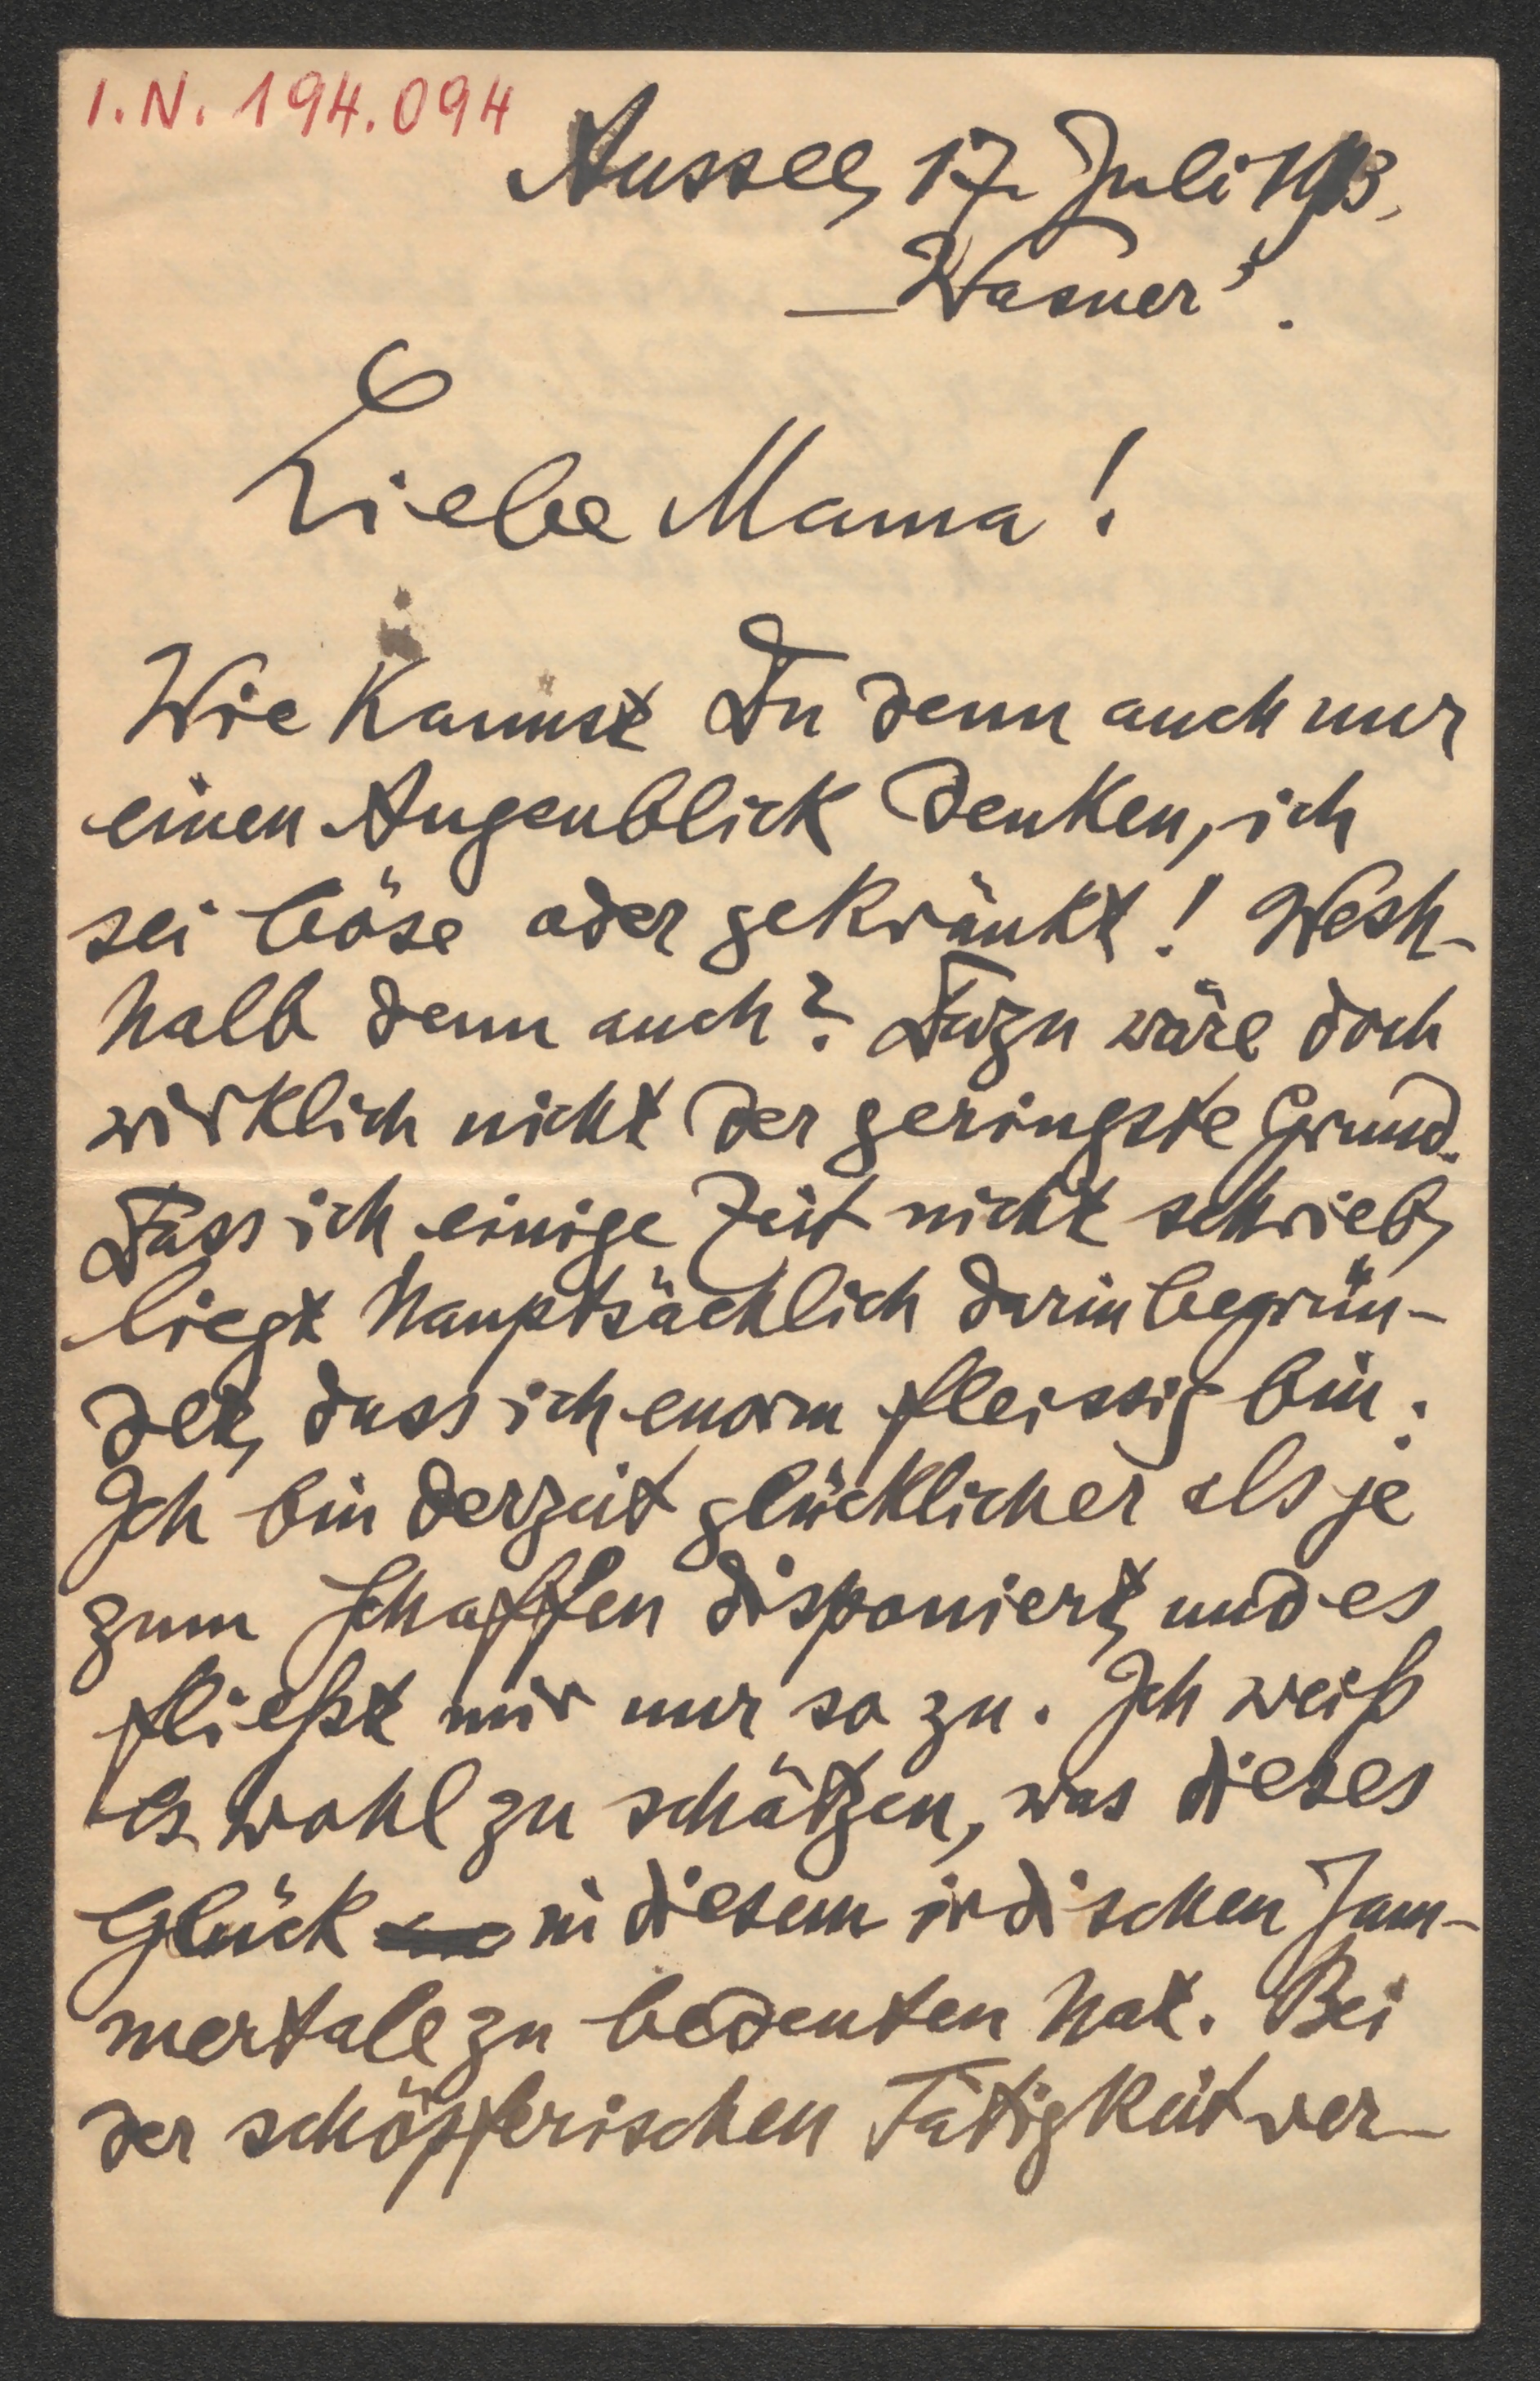 I.N. 194.094
Aussee, 17. Juli 1913,
„Wasner“.
Liebe Mama!
Wie kannst Du denn auch nur
einen Augenblick denken, ich
sei böse oder gekränkt! Wesh-
halb denn auch? Dazu wäre doch
wirklich nicht der geringste Grund.
Dass ich einige Zeit nicht schrieb,
liegt hauptsächlich darin begrün-
det, dass ich enorm fleissig bin.
Ich bin derzeit glücklicher als je
zum Schaffen disponiert, und es
fließt mir nur so zu. Ich weiß
es wohl zu schätzen, was dieses
Glück in diesem irdischen Jam-
mertale zu bedeuten hat. Bei
der schöpferischen Tätigkeit ver-